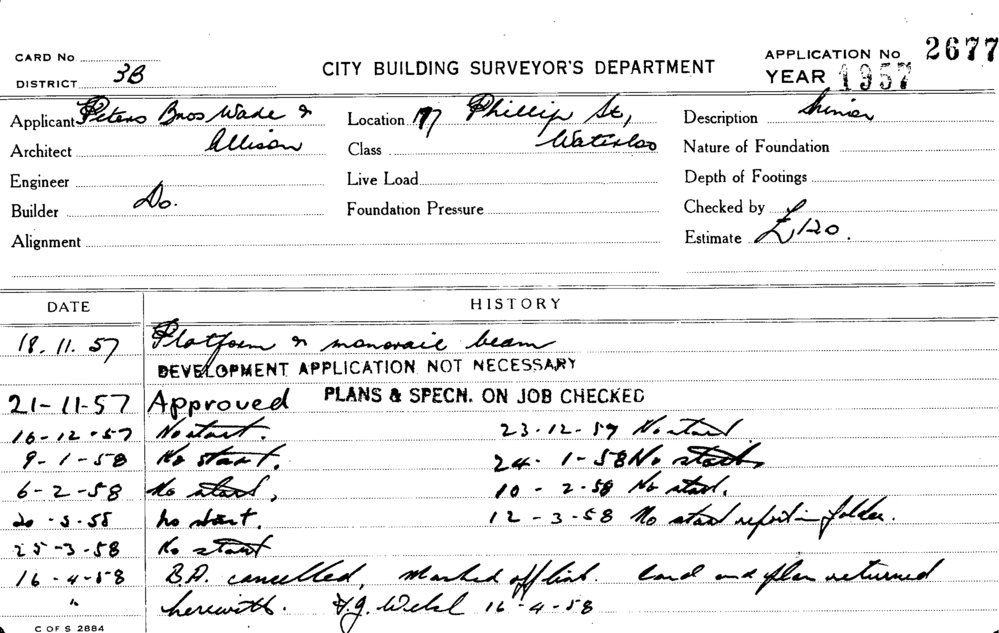 CARD No
DISTRICT 3B
CITY BUILDING SURVEYOR'S DEPARTMENT
APPLICATION No 2677
YEAR 1957
Applicant Peters Bros Wade &
Allison
Architect
Engineer
Builder Do.
Alignment
Location 77 Phillip St,
Waterloo
Class
Live Load
Foundation Pressure
Description Minor
Nature of Foundation
Depth of Footings
Checked by
Estimate £120.
DATE HISTORY
18.11.57 Platform & monorail beam
DEVELOPMENT APPLICATION NOT NECESSARY
21-11-57 Approved PLANS & SPECN. ON JOB CHECKED
16-12-57 No start. 23-12-57 No start
9-1-58 No start. 24-1-58 No start,
6-2-58 No start, 10-2-58 No start.
20-3-58 no start. 12-3-58 No start report in folder.
25-3-58 No start
16-4-58 B.A. cancelled, marked off list. Card and plan returned
" herewith. 16-4-58
C OF S 2884